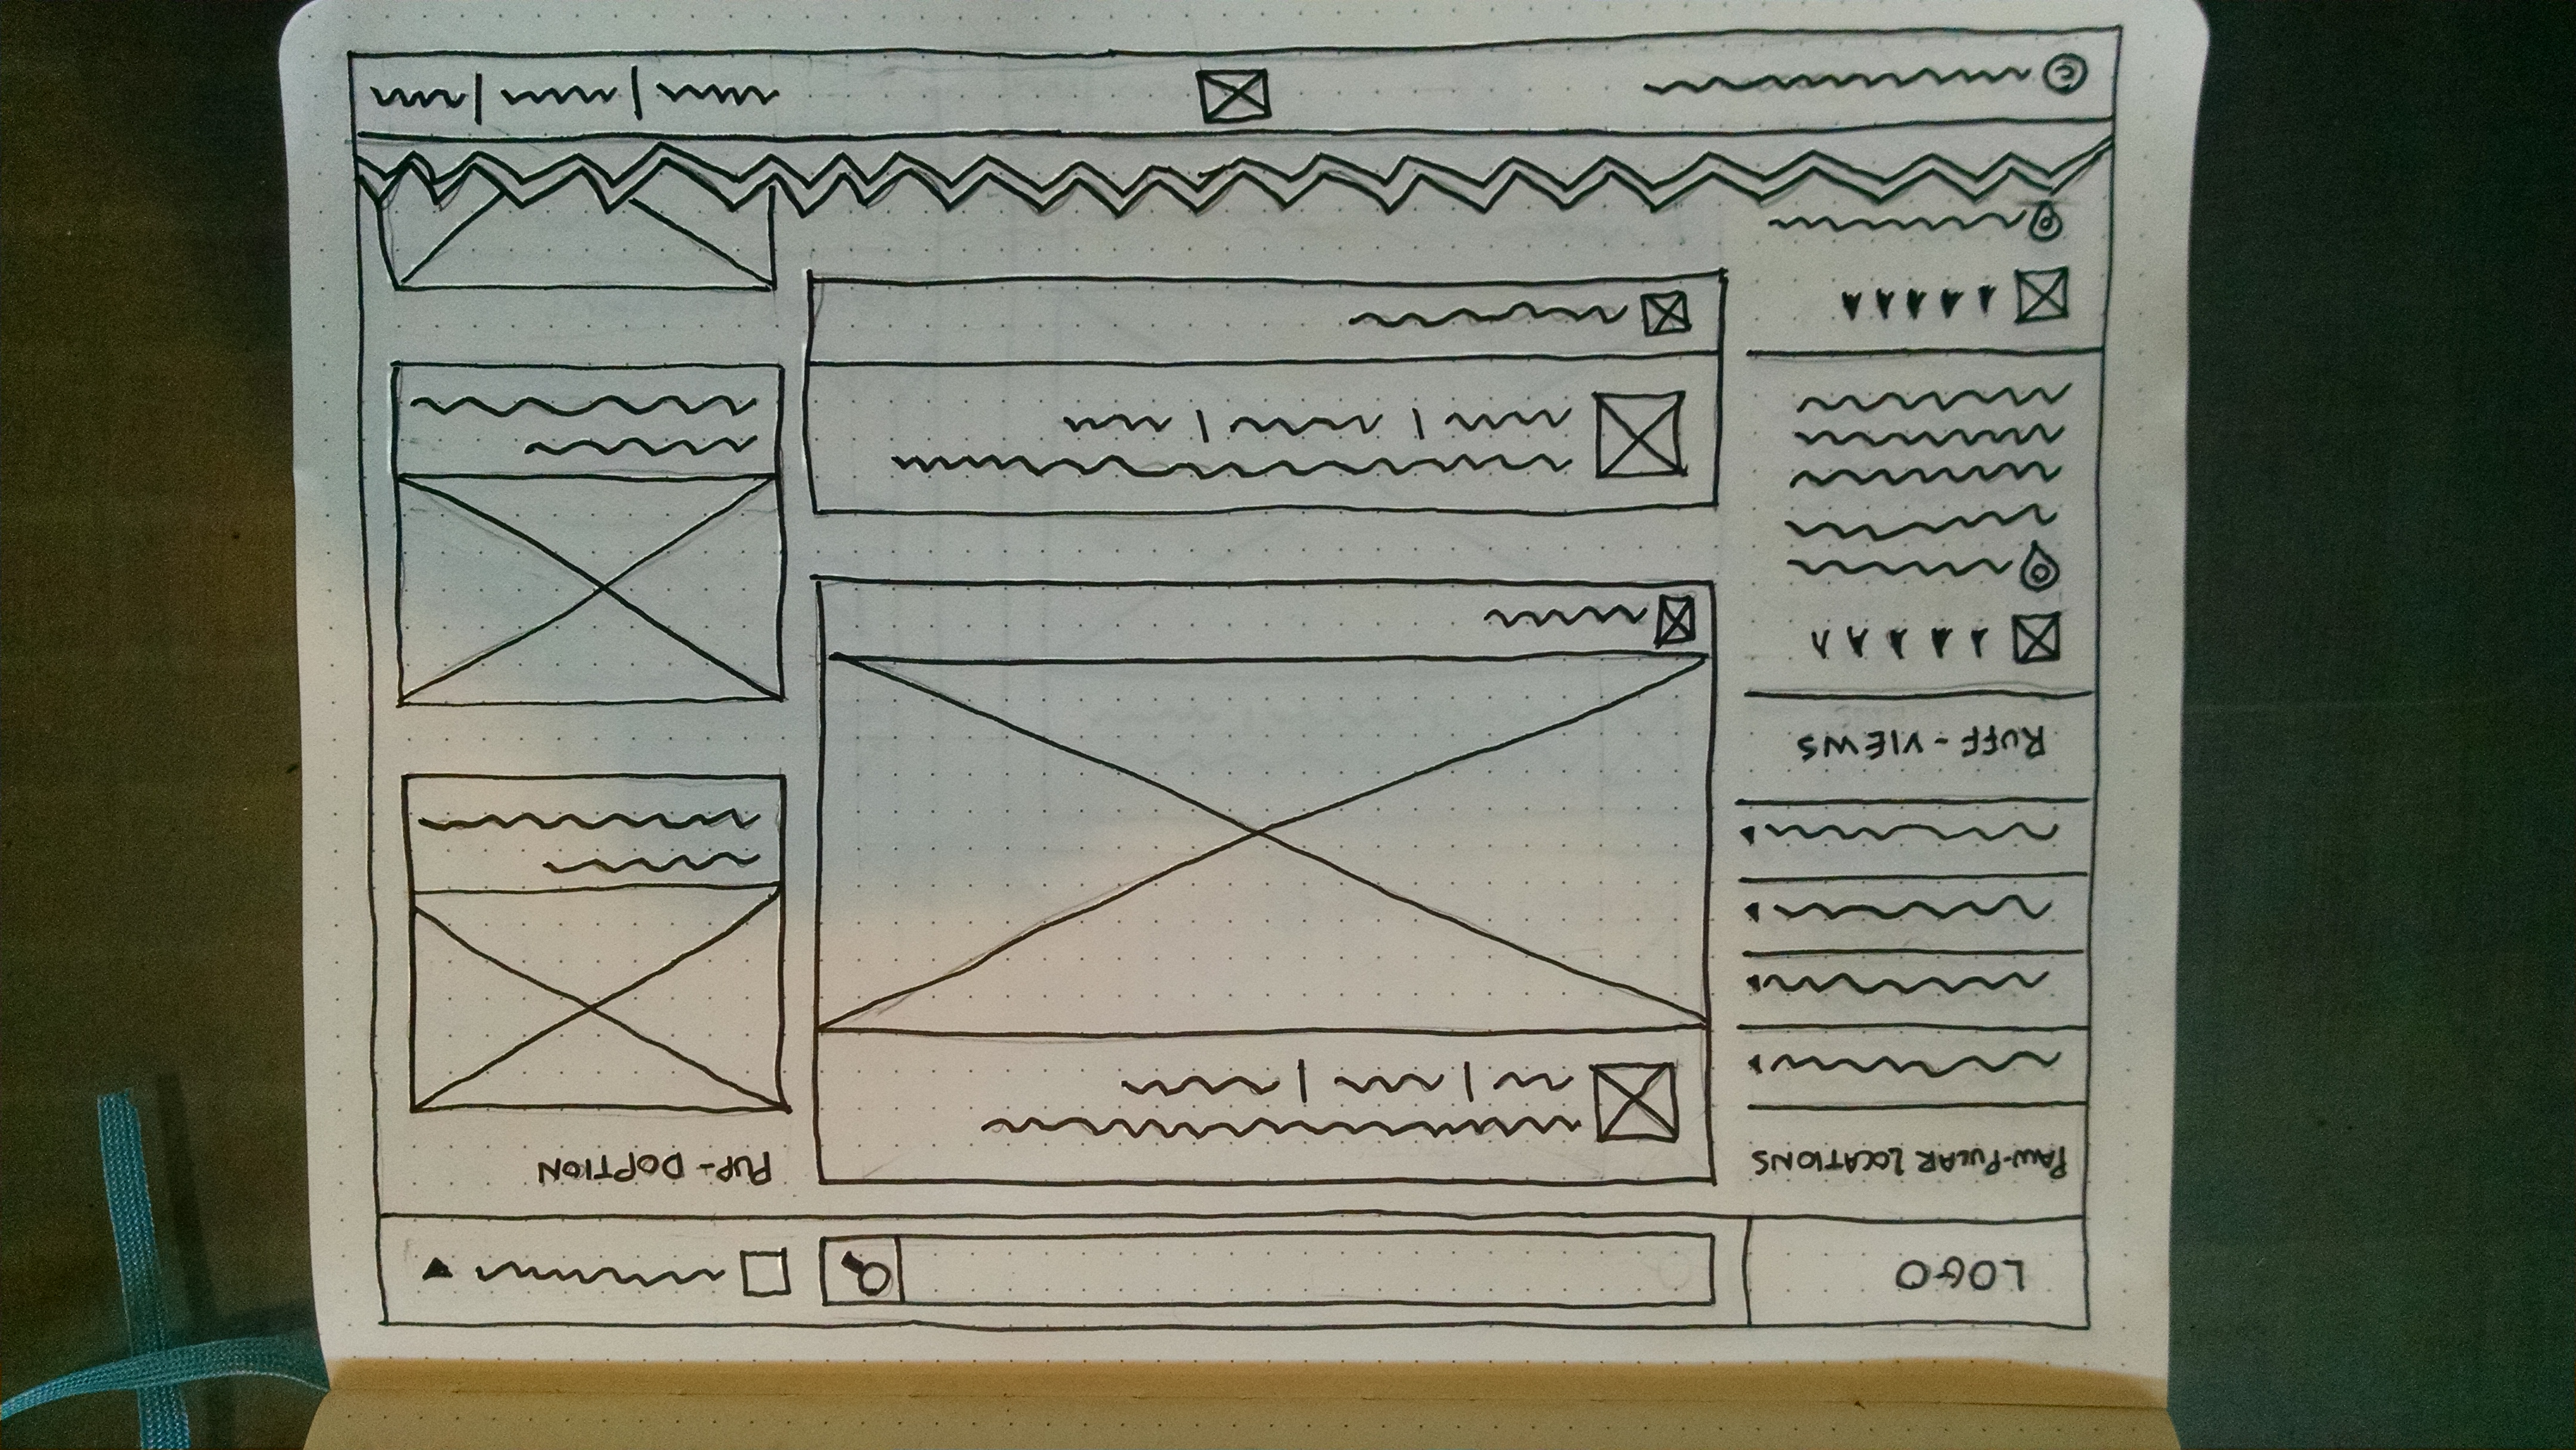 LOGO
PAW-PULAR LOCATIONS
RUFF-VIEWS
PUP-DOPTION
©